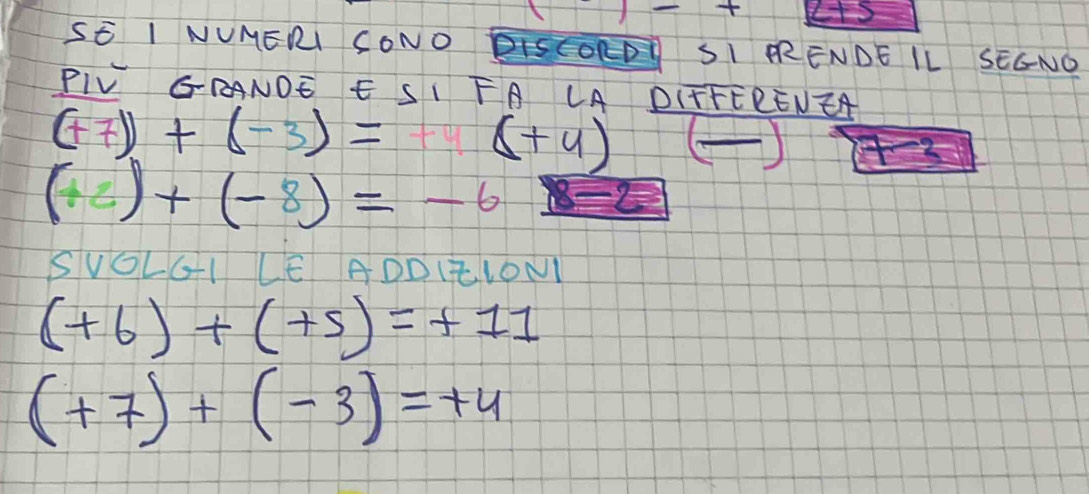 ( ) - + 2+5
SE I NUMERI SONO DISCORDI SI PRENDE IL SEGNO
PIÙ GRANDE E SI FA LA DIFFERENZA
(+7) + (-3) = +4 (+4) (-) 7-3
(+2) + (-8) = -6 8-2
SVOLGI LE ADDIZIONI
(+6) + (+5) = + 11
(+7) + (-3) = +4